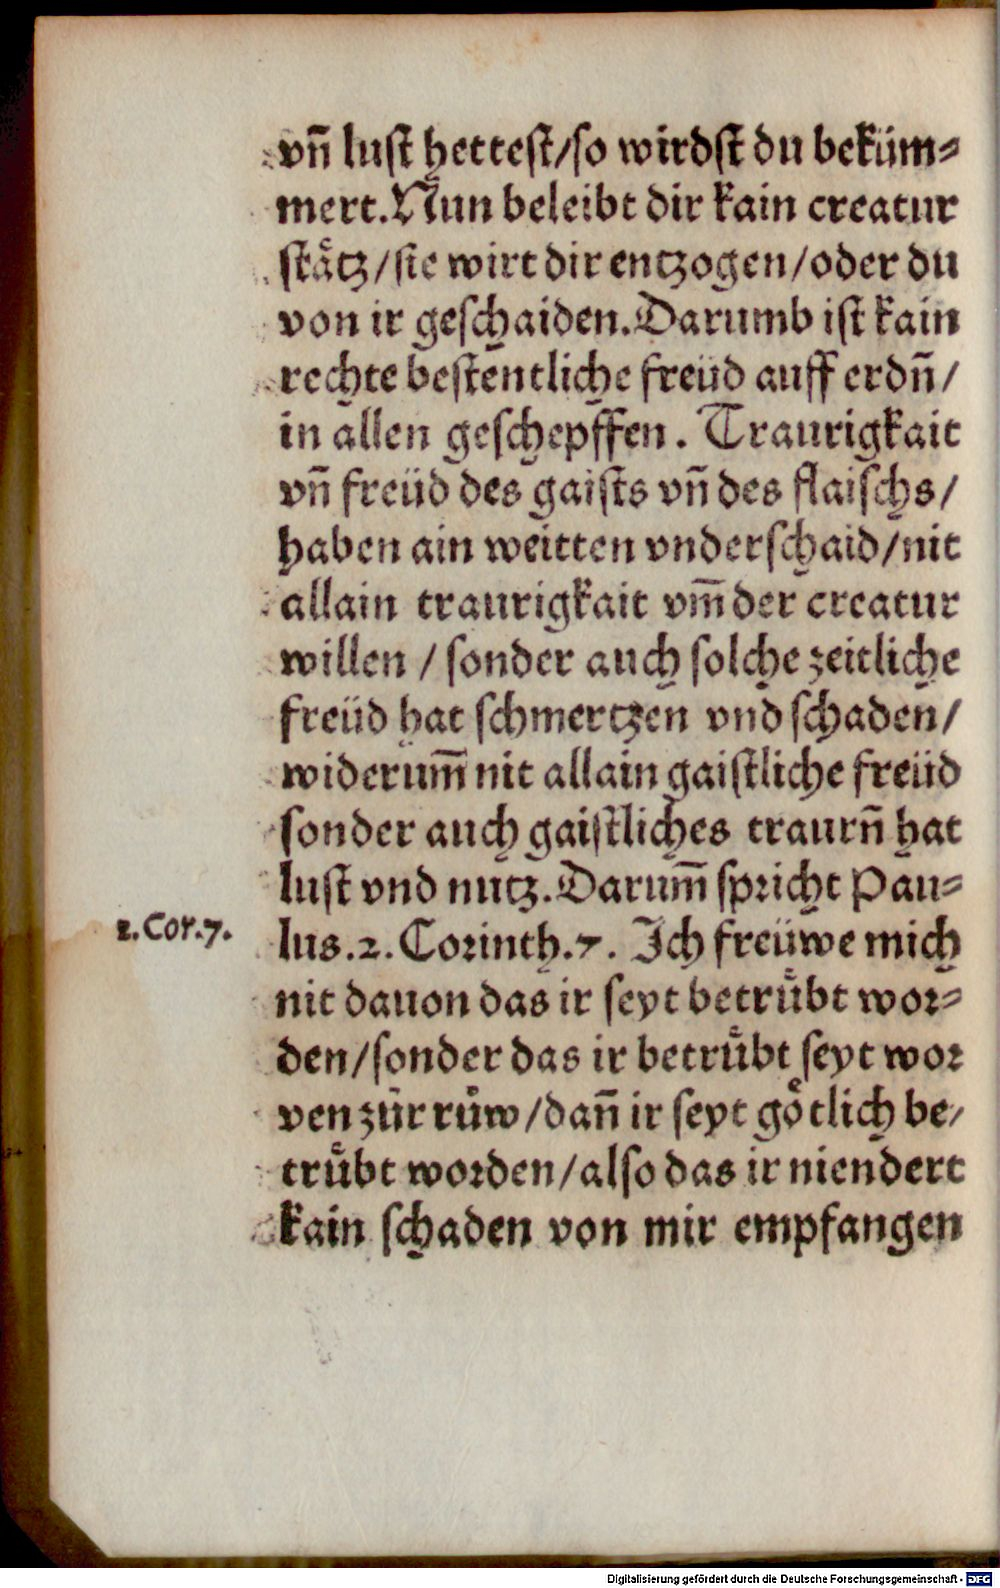 vñ lust hettest/so wirdst du beküm⸗
mert. Nun beleibt dir kain creatur
stätz/sie wirt dir entzogen/oder du
von ir geschaiden. Darumb ist kain
rechte bestentliche freüd auff erdñ/
in allen geschepffen. Traurigkait
vñ freüd des gaists vñ des flaischs/
haben ain weitten vnderschaid/nit
allain traurigkait vm̄ der creatur
willen / sonder auch solche zeitliche
freüd hat schmertzen vnd schaden/
widerum̄ nit allain gaistliche freüd
sonder auch gaistliches traurñ hat
lust vnd nutz. Darum̄ spricht Pau⸗
2. Cor. 7.
lus. 2. Corinth. 7. Ich freüwe mich
nit dauon das ir seyt betrůbt wor⸗
den/sonder das ir betrůbt seyt wor
ven zůr růw/dañ ir seyt gòtlich be/
trůbt worden/also das ir niendert
kain schaden von mir empfangen
Digitalisierung gefördert durch die Deutsche Forschungsgemeinschaft - DFG